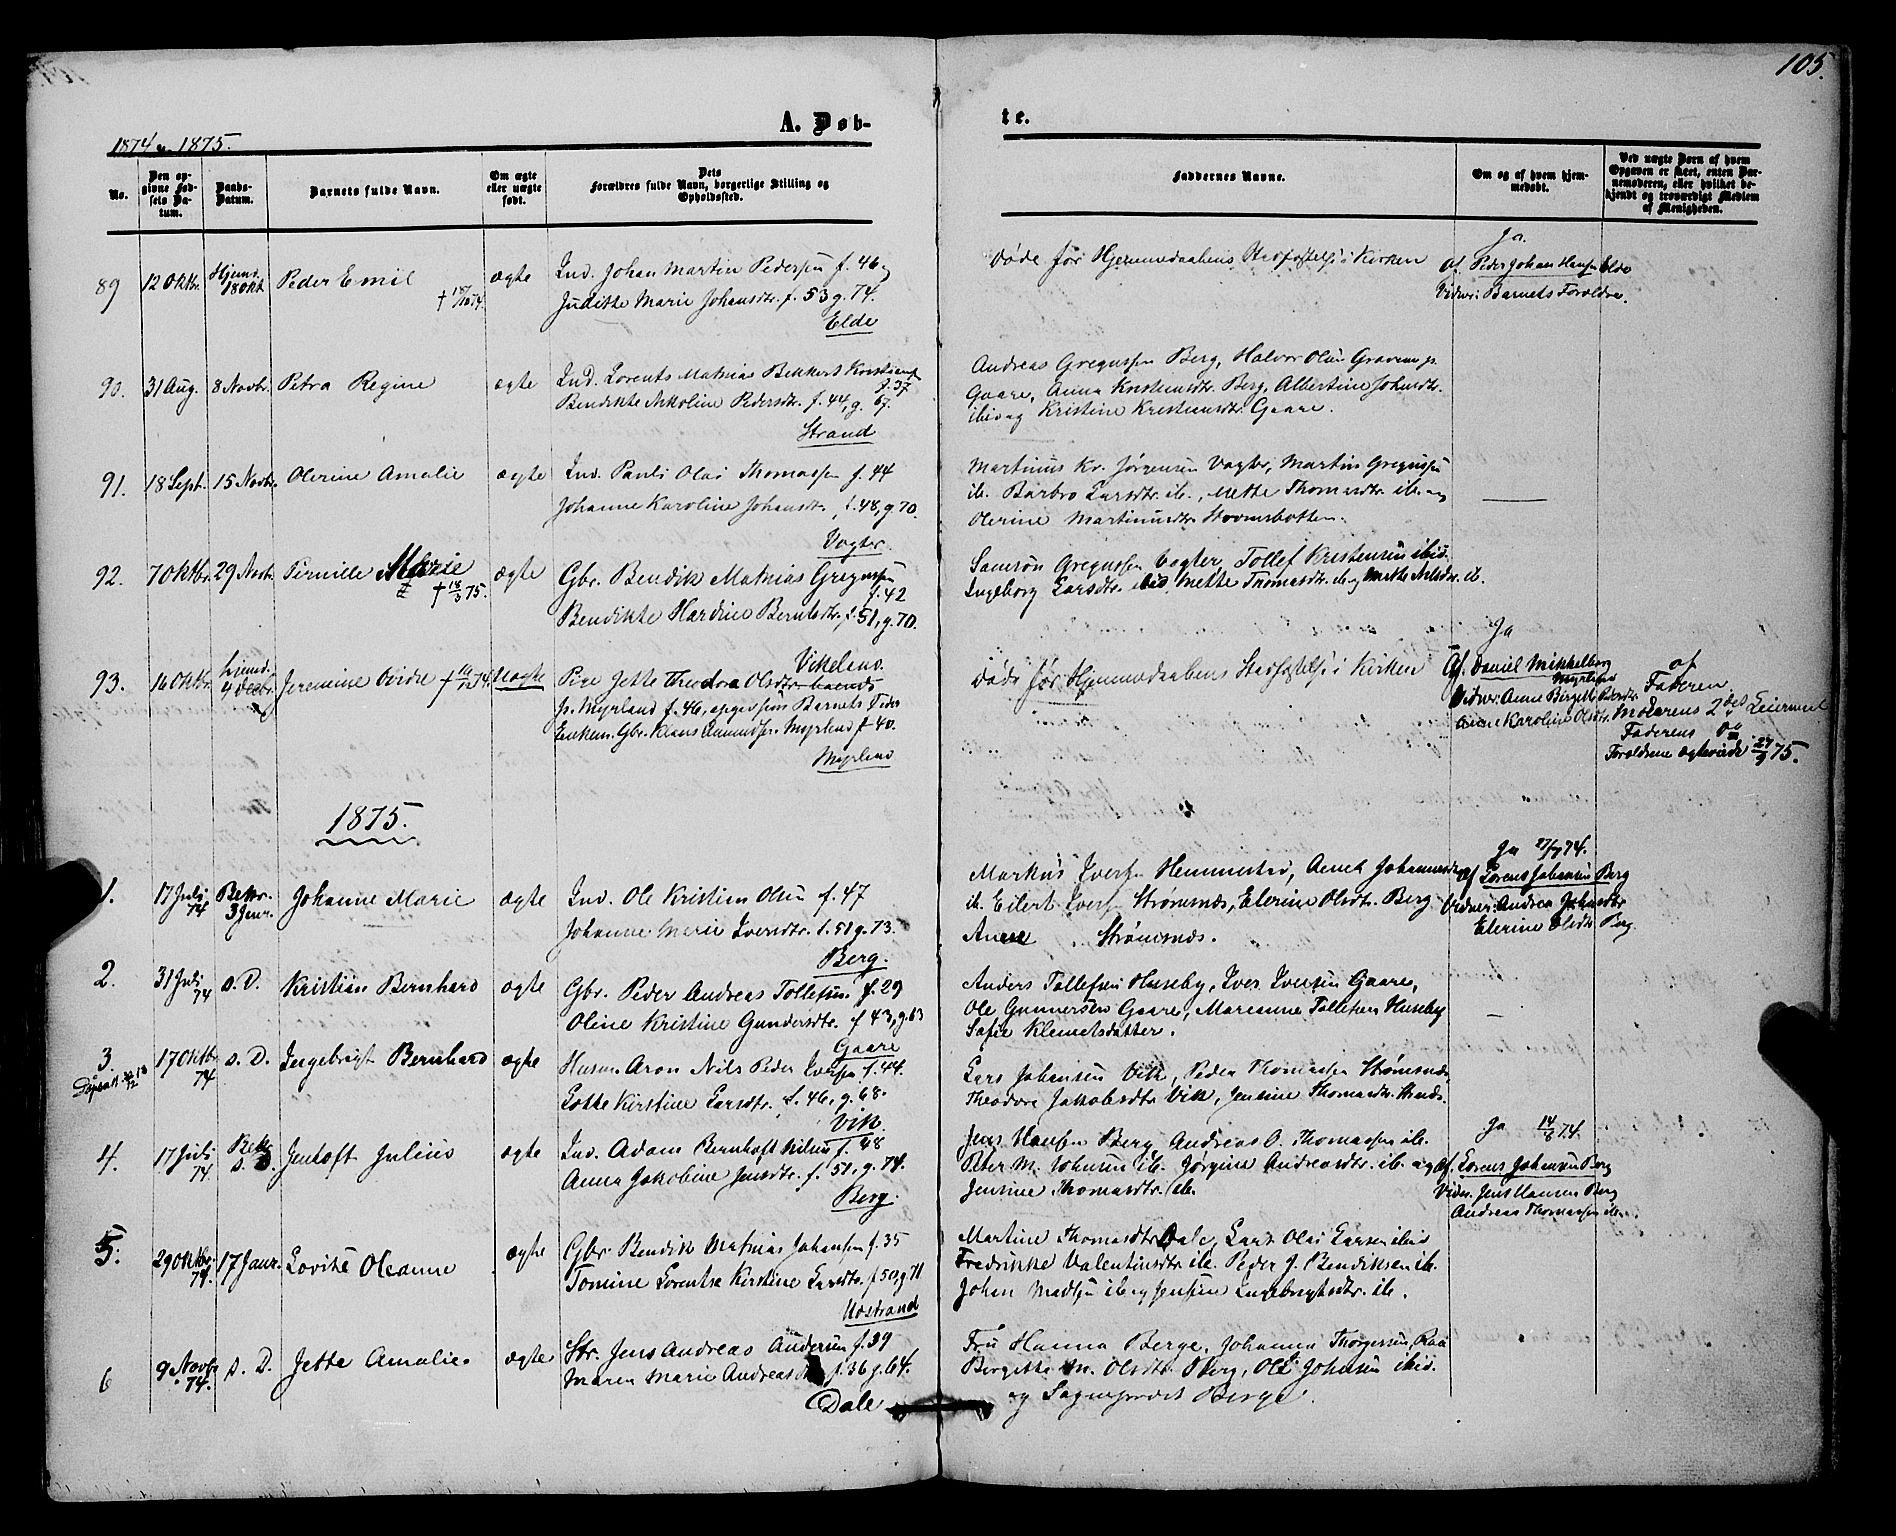 105.
A. Døb-
te.
1874 og 1875.
No.
Den op-
givne Fød-
sels Da-
tum.
Daabs-
Datum.
Barnets fulde Navn.
Om ægte
eller uægte
født.
Dets
Forældres fulde Navn, borgerlige Stilling og
Opholdssted.
Faddernes Navne.
Om og af hvem hjem-
medøbt.
Ved uægte Børn af hvem
Opgaven er skeet, enten Bar-
nemoderen, eller hvilket be-
kjendt og troværdigt Medlem
af Menigheden.
89 12 Oktbr. Hjemd. 18 Okt. Peder Emil † 18/10 74. ægte
Ind. Johan Martin Pedersen f. 46 og
Juditte Marie Johansdtr. f. 53 g. 74.
Elde
Døde før Hjemmedaabens Stadfæstelse i Kirken
Ja.
af Peder Johan Hansen Elde
Vidner: Barnets Forældre.
90. 31 Aug. 8 Novbr. Petra Regine ægte
Ind. Lorents Mathias Bekkert Kristiansen f. 37
Bendikte Nikoline Pedersdtr. f. 44, g. 67.
Strand
Andreas Gregussen Berg, Halvor Olsen Gravem p.
Gaare, Anna Kristensdtr. Berg, Albertine Johnsdtr.
ibid og Kristine Kristiansdtr. Gaare.
91. 18 Sept. 15 Novbr. Olerine Amalie ægte
Ind. Pauls Olai Thomassen f. 44
Johanne Karoline Johansdtr. f. 48, g. 70.
Vogter.
Martinus Kr. Jørgensen Vagter, Martin Gregussen
ib. Barbro Larsdtr. ib., Mette Thomasdtr. ib. og
Olerine Martinusdtr.
92. 7 Oktbr. 29 Novbr. Pernille Marie † 18/3 75. ægte
Gbr. Bendik Mathias Gregussen f. 42
Bendikte Hardine Berntsdtr. f. 51, g. 70.
Vikeland.
Samson Gregussen Vagter, Tollef Kristensen ibid.
Ingeborg Larsdtr. ibid, Mette Thomasdtr. ib og Mette Nilsdtr. ib.
93. 16 Oktbr. hjemd. 4 Decbr. Jeremine † 74. Uægte
Pige Jette Theodora Olsdtr.
p. Myrland f. 46, opgev som Barnets Fader
Enkem. Gbr. Klaus Amundsen Myrland f. 40.
Myrland
Døde før Hjemmedaabens Stadfæstelse i Kirken
Ja
Af. Daniel Mikkelborg
Myrland
Vidner: Anne Birgitte Pedersdtr.
Anne Karoline Olsdtr.
af
Faderen
Moderens 2det Leiermaal
Faderens
Forældrene ægteviede 27/9 75.
1875.
1. 17 Juli 74 Bekr. 3 Janr. Johanne Marie ægte
Ind. Ole Kristian Olsen f. 47
Johanne Marie Iversdtr. f. 51 g. 73.
Berg.
Markus Iversen Hemmestad, Anna Johannesdtr.
ib. Eilert Iversen Strømsnæs, Elerine Olsdtr. Berg
Anne Strømsnæs.
Ja 27/7 74.
af Lorens Johansen Berg
Vidner: Andrea Johnsdtr
Elerine Olsdtr Berg.
2. 31 Juli 74 s. D. Kristian Bernhard ægte
Gbr. Peder Andreas Tollefsen f. 29
Oline Kristine Gundersdtr. f. 43, g. 63
Gaare
Anders Tollefsen Huseby, Iver Iversen Gaare,
Ole Gunnersen Gaare, Marianne Tollefsen Huseby
Sofie Klemetsdatter.
3 17 Oktbr. 74 s. D. Ingebrigt Bernhard ægte
Husm. Aron Nils Peder Iversen f. 44.
Lotte Kirstine Larsdtr. f. 46, g. 68.
Vik.
Lars Johansen Vik, Peder Thomassen Strømsnæs,
Theodore Jakobsdtr Vik, Jensine Thomasdtr. Strøms.
4. 17 Juli 74 Bekr. s. D. Jentoft Julius ægte
Ind. Adam Bernhoft Nilsen f. 48
Anna Jakobine Jensdtr. f. 51, g. 74.
Berg.
Jens Hansen Berg, Andreas O. Thomassen ib.
Peter M. Johnsen ib. Jørgine Andreasdtr. ib. og
Jensine Thomasdtr. ib.
Ja 14/8 74.
af. Lorens Johansen Berg
Vidn. Jens Hansen Berg
Andreas Thomassen ib.
5. 29 Oktbr. 74. 17 Janr. Lovise Oleanne ægte
Gbr. Bendik Mathias Johansen f. 35
Tomine Lorentse Kirstine Larsdtr. f. 50, g. 71
Uostrand
Martine Thomasdtr Dale, Lars Olai Larsen ibid
Fredrikke Valentinsdtr ib. Peder J. Bendiksen ib.
Johan Madsen ib og Jensine Ingebrigtsdtr. ib.
6 9 Novbr 74. s. D. Jette Amalie. ægte
Str. Jens Andreas Andersen f. 39
Maren Marie Andreasdtr f. 36 g. 64.
Dale
Fru Hanna Berge, Johannes Thorgersen Raa
Bergitte M. Olsdtr Berg, Ole Johnsen ibid.
og Sognepræst Berge.